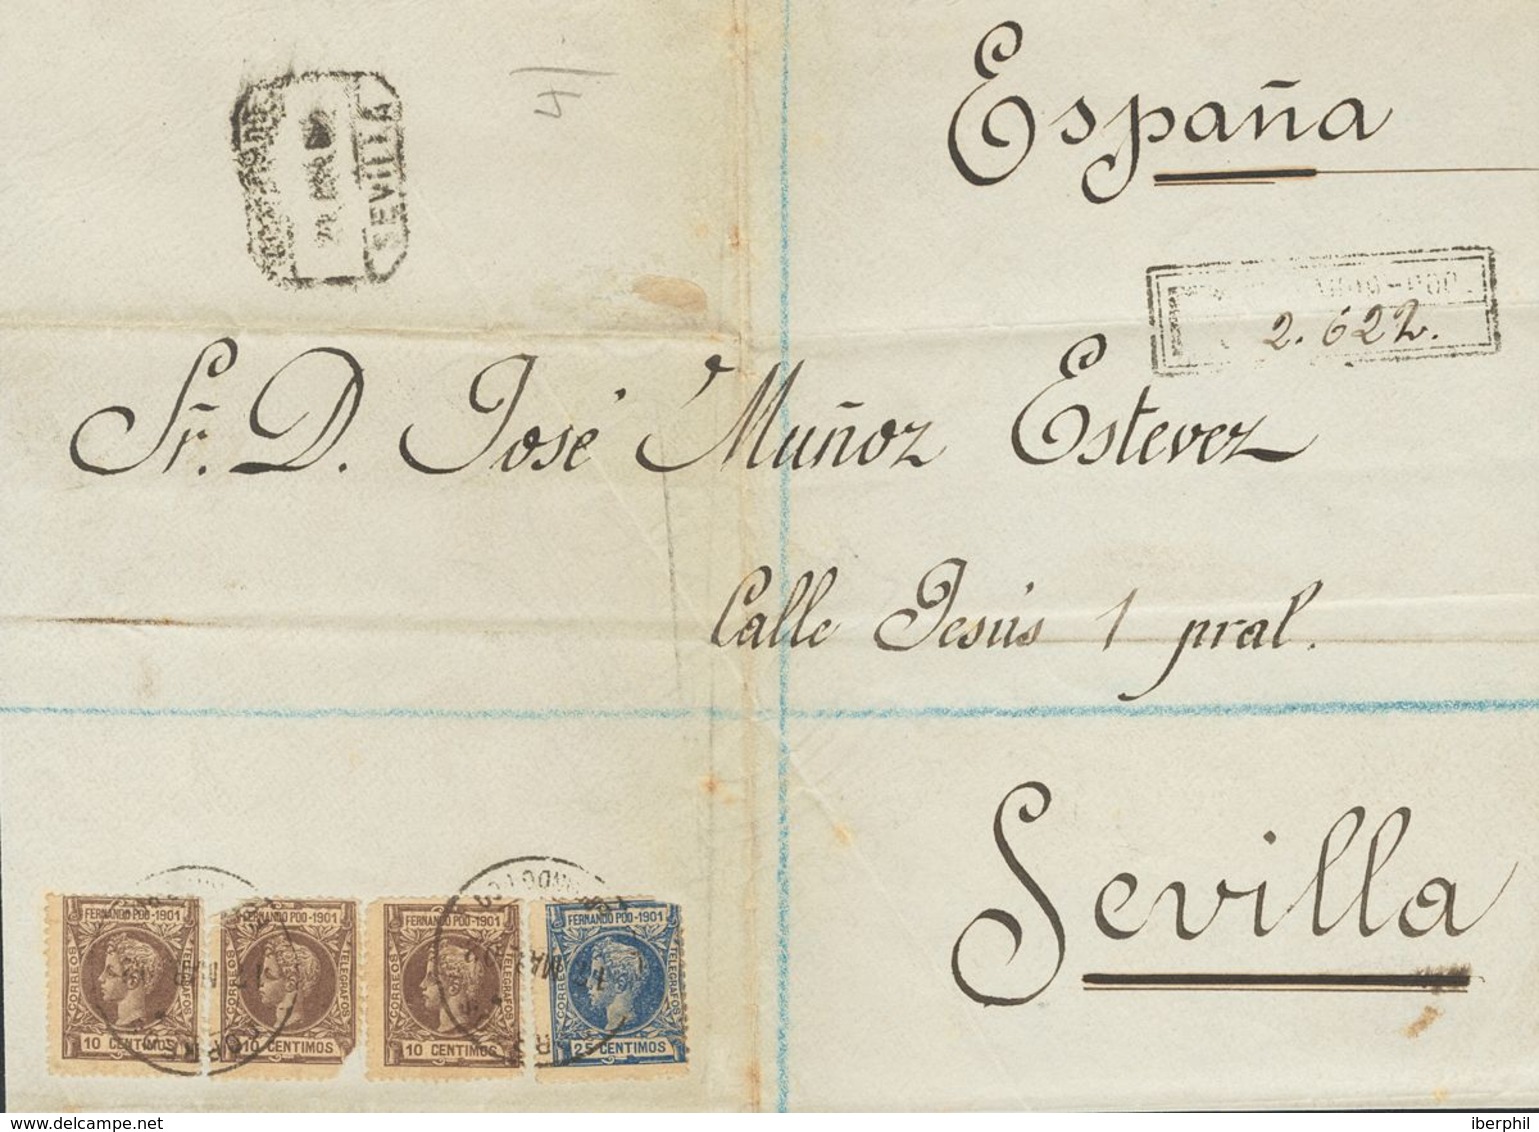 España
SEVILLA
2.622.
Sr. D. José Muñoz Estevez
Calle Jesús 1 pral.
Sevilla
FERNANDO POO-1901
CORREOS
TELEGRAFOS
10 CENTIMOS
FERNANDO POO-1901
CORREOS
TELEGRAFOS
10 CENTIMOS
FERNANDO POO-1901
CORREOS
TELEGRAFOS
10 CENTIMOS
FERNANDO POO-1901
CORREOS
TELEGRAFOS
25 CENTIMOS
iberphil
www.delcampe.net